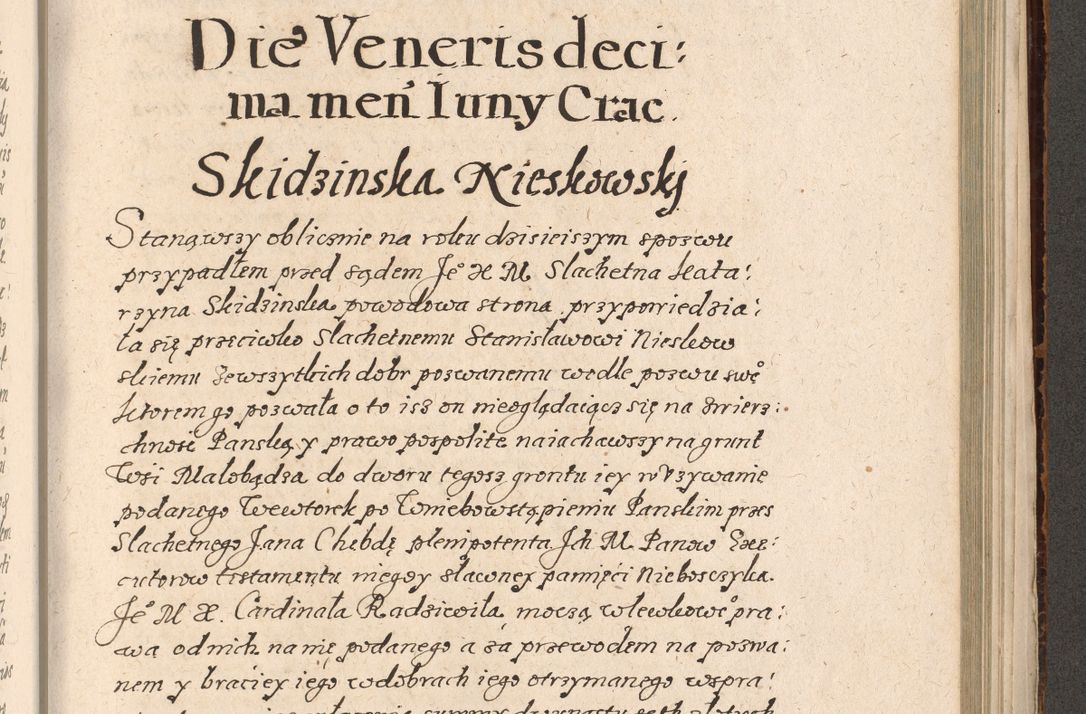 Die Veneris deci:
ma men Iuny Crac.
Skidzinska Nieskowskj
Stanąwszy oblicznie na roku dzisieiszym spozwu
przypadłem przed sądem Je° X M. Slachetna Kata:
rzyna Skidzinska powodowa strona przypowiedzia:
ła się przeciwko Slachetnemu Stanisławowi Nieskow
skiemu zewszytkich dobr pozwanemu wedle pozwu swe°
ktorem go pozwała o to isz on nieoglądaiącz się na zwierz:
chność Panską y prawo pospolite naiachawszy na grunt
Wsi Małobądza do dworu tegosz grontu iey w vzywanie
podanego Wewtorek po Wniebowstąpieniu Panskim przes
Slachetnego Jana Chebdę plenipotenta Ich M. Panow Exe:
cutorow testamentu niegdy sławney pamięci Nieboszczyka
Je° M X. Cardinała Radziwiła moczą wlewkowe° pra:
wa od nich na nię podanego a za przewodem na pozwa:
nem y braciey iego w dobrach iego otrzymanego wspra: